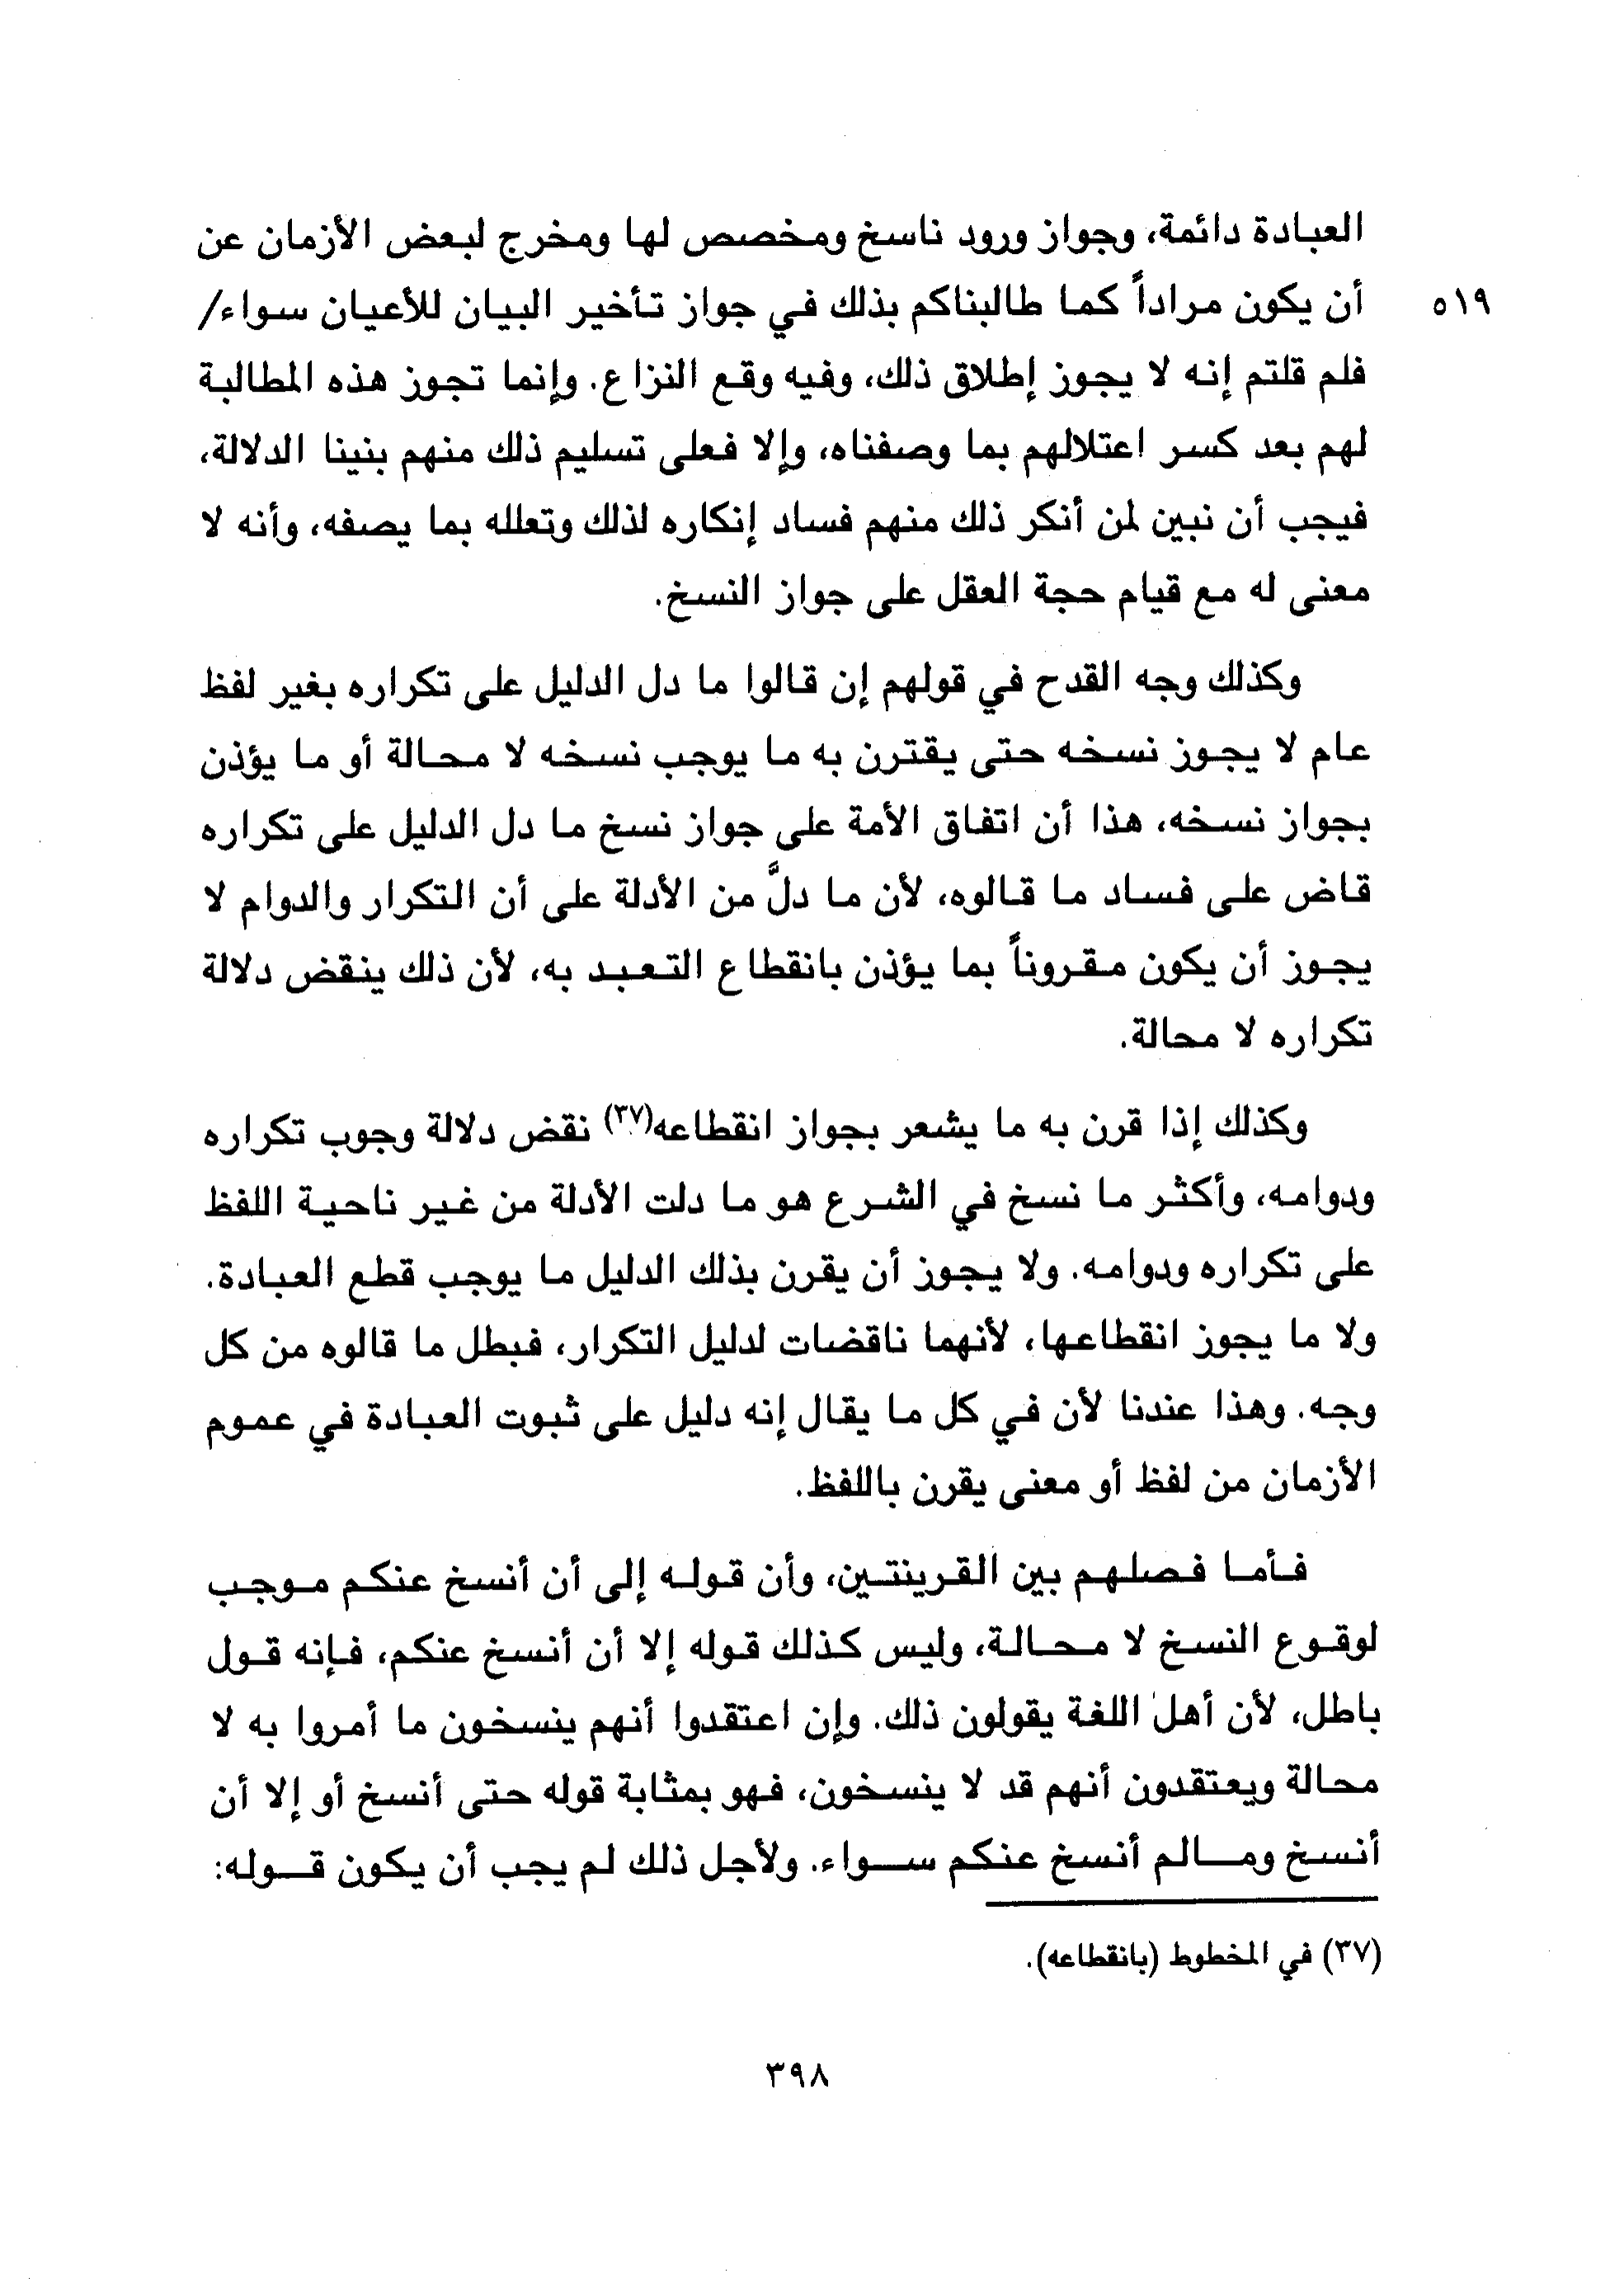 العبادة دائمة، وجواز ورود ناسخ ومخصص لها ومخرج لبعض الأزمان عن
أن يكون مراداً كما طالبناكم بذلك في جواز تأخير البيان للأعيان سواء/ ٥١٩
فلم قلتم إنه لا يجوز إطلاق ذلك، وفيه وقع النزاع. وإنما تجوز هذه المطالبة
لهم بعد كسر اعتلالهم بما وصفناه، وإلا فعلى تسليم ذلك منهم بنينا الدلالة،
فيجب أن نبين لمن أنكر ذلك منهم فساد إنكاره لذلك وتعلله بما يصفه، وأنه لا
معنى له مع قيام حجة العقل على جواز النسخ.
وكذلك وجه القدح في قولهم إن قالوا ما دل الدليل على تكراره بغير لفظ
عام لا يجوز نسخه حتى يقترن به ما يوجب نسخه لا محالة أو ما يؤذن
بجواز نسخه، هذا أن اتفاق الأمة على جواز نسخ ما دل الدليل على تكراره
قاض على فساد ما قالوه، لأن ما دلَّ من الأدلة على أن التكرار والدوام لا
يجوز أن يكون مقروناً بما يؤذن بانقطاع التعبد به، لأن ذلك ينقض دلالة
تكراره لا محالة.
وكذلك إذا قرن به ما يشعر بجواز انقطاعه(٣٧) نقض دلالة وجوب تكراره
ودوامه، وأكثر ما نسخ في الشرع هو ما دلت الأدلة من غير ناحية اللفظ
على تكراره ودوامه. ولا يجوز أن يقرن بذلك الدليل ما يوجب قطع العبادة.
ولا ما يجوز انقطاعها، لأنهما ناقضات لدليل التكرار، فبطل ما قالوه من كل
وجه. وهذا عندنا لأن في كل ما يقال إنه دليل على ثبوت العبادة في عموم
الأزمان من لفظ أو معنى يقرن باللفظ.
فأما فصلهم بين القرينتين، وأن قوله إلى أن أنسخ عنكم موجب
لوقوع النسخ لا محالة، وليس كذلك قوله إلا أن أنسخ عنكم، فإنه قول
باطل، لأن أهل اللغة يقولون ذلك. وإن اعتقدوا أنهم ينسخون ما أمروا به لا
محالة ويعتقدون أنهم قد لا ينسخون، فهو بمثابة قوله حتى أنسخ أو إلا أن
أنسخ ومالم أنسخ عنكم سواء. ولأجل ذلك لم يجب أن يكون قوله:
(٣٧) في المخطوط (بانقطاعه).
٣٩٨